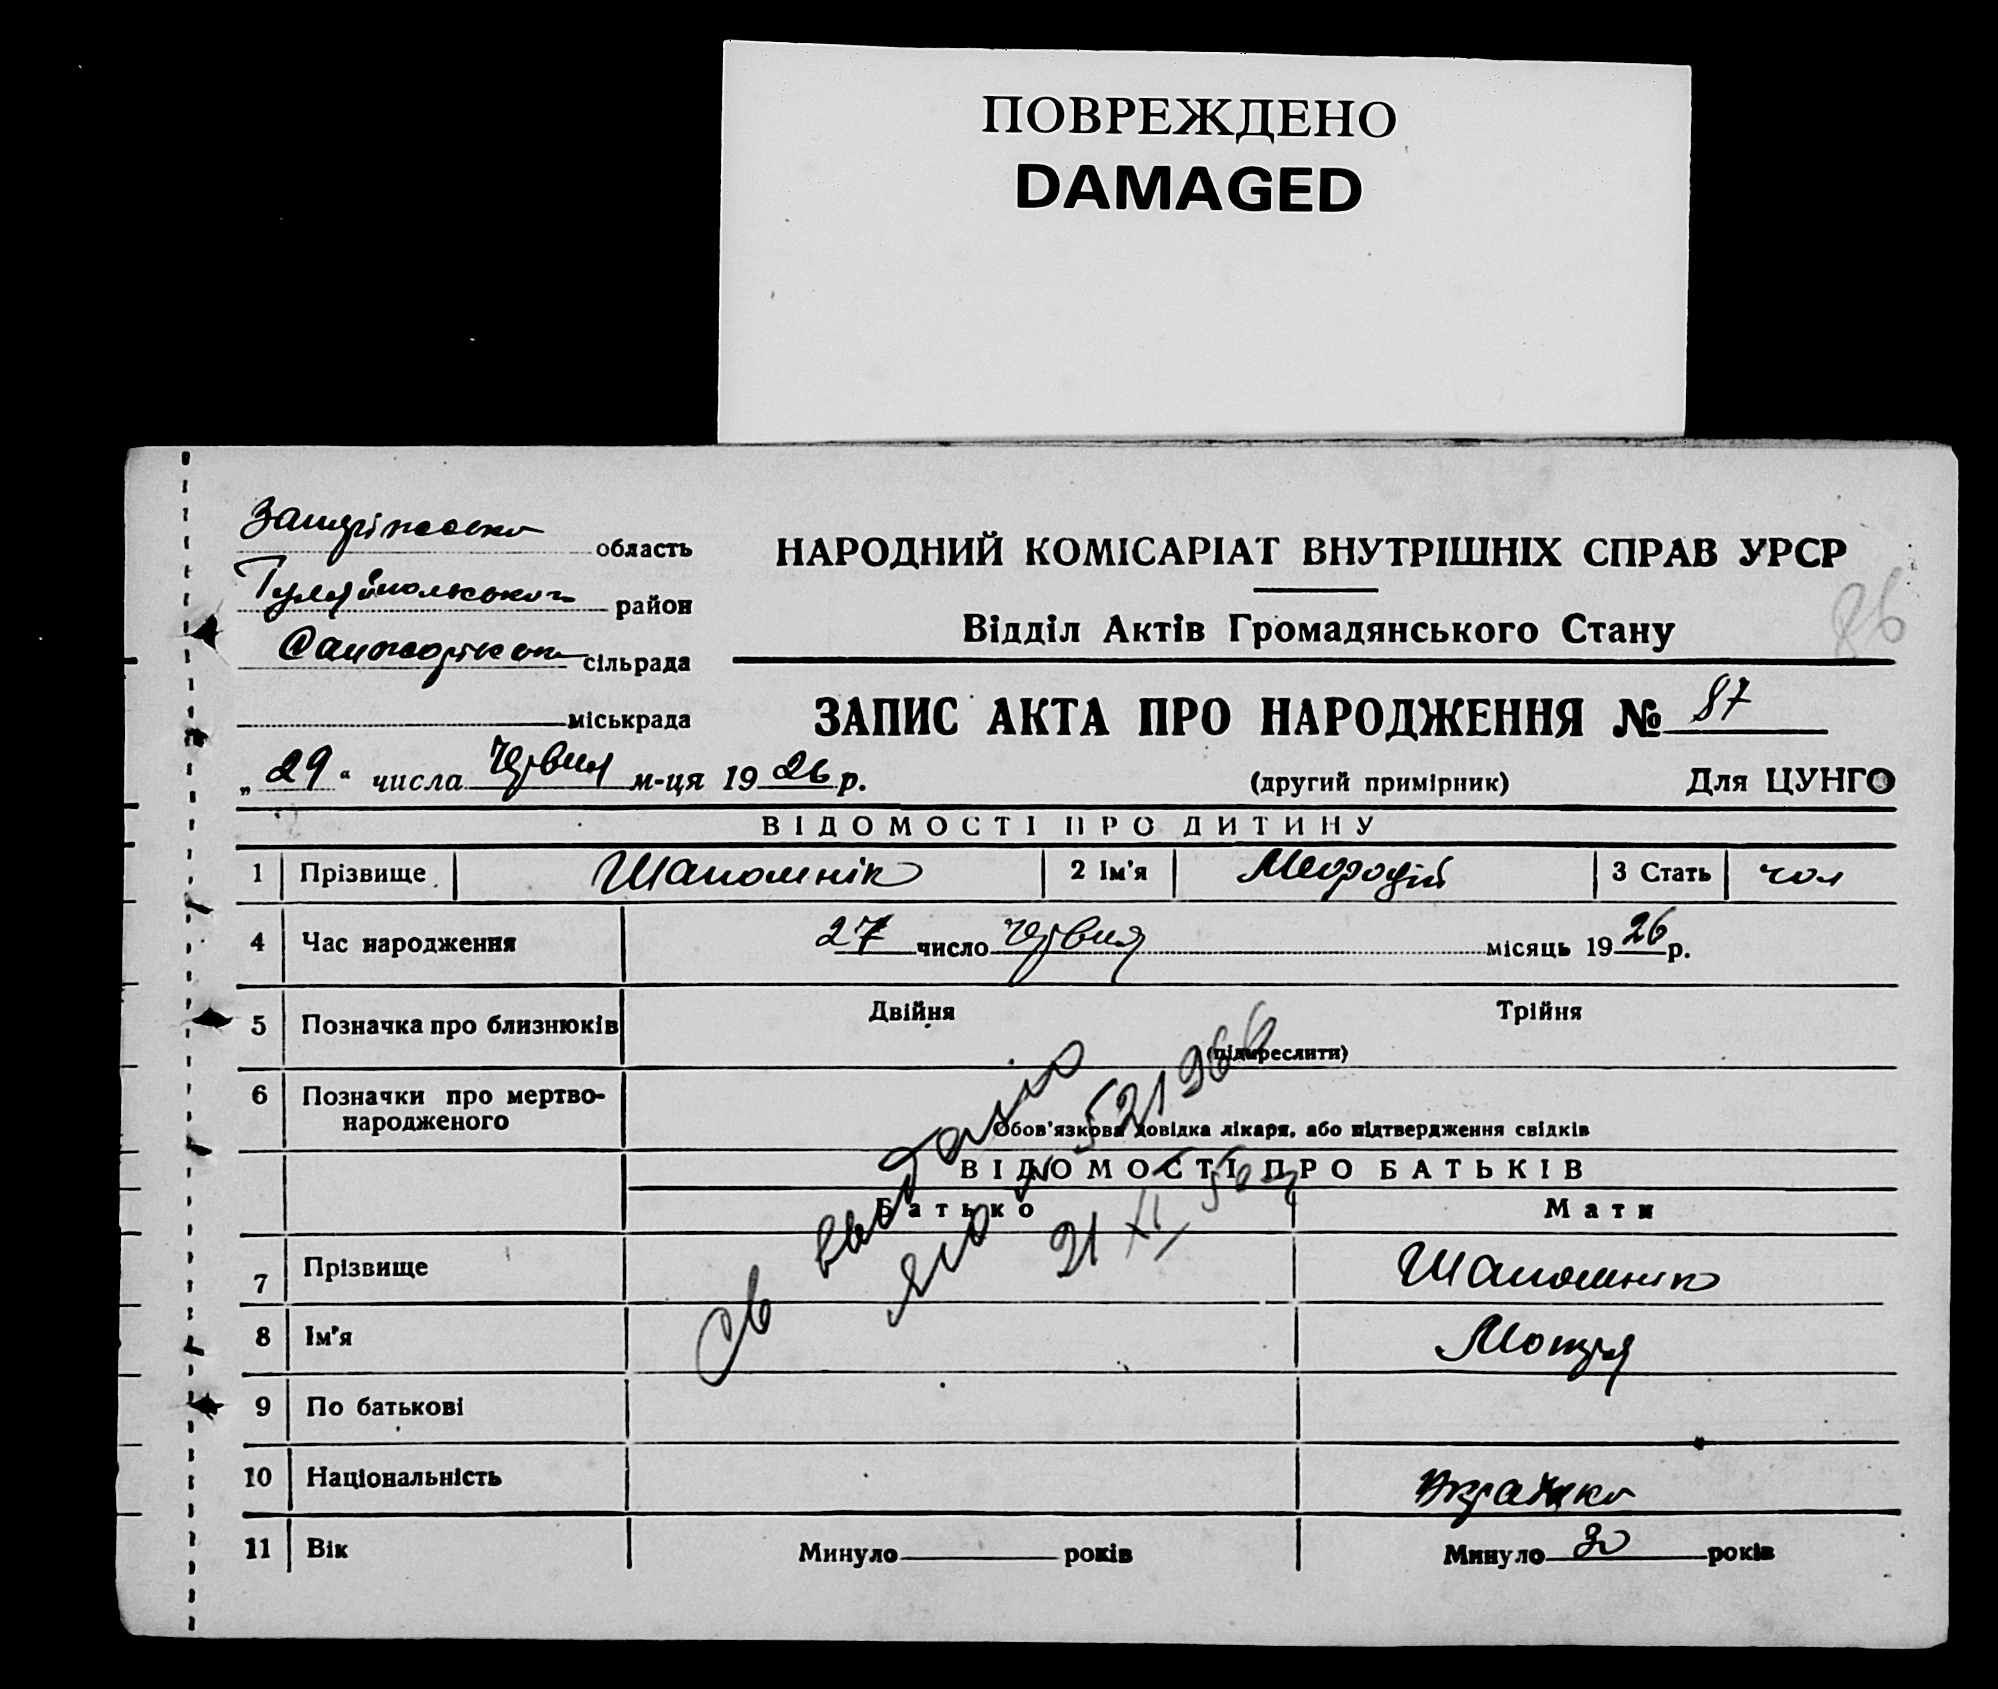 ПОВРЕЖДЕНО
DAMAGED
область
район
сільрада
міськрада
НАРОДНИЙ КОМІСАРІАТ ВНУТРІШНІХ СПРАВ УРСР
86
Відділ Актів Громадянського Стану
ЗАПИС АКТА ПРО НАРОДЖЕННЯ № 87
„ 29 “ числа червня м-ця 19 26 р.
(другий примірник) Для ЦУНГО
ВІДОМОСТІ ПРО ДИТИНУ
1 Прізвище Шапошнік 2 Ім'я Мефодій 3 Стать чол
4 Час народження 27 число червня місяць 19 26 р.
5 Позначка про близнюків Двійня Трійня
(підкреслити)
6 Позначки про мертво-
народженого
Обов'язкова довідка лікаря, або підтвердження свідків
ВІДОМОСТІ ПРО БАТЬКІВ
Батько Мати
7 Прізвище Шапошнік
8 Ім'я Мотря
9 По батькові
10 Національність
11 Вік Минуло років Минуло 30 років